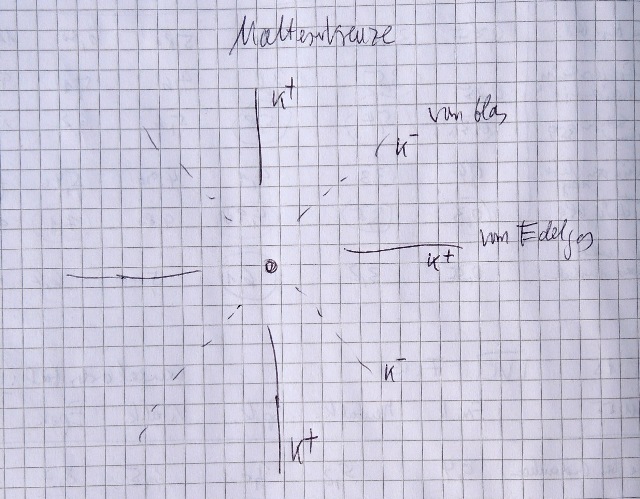 Malteserkreuze
K+
vom Glas
K-
vom Edelgas
K+
K-
K+